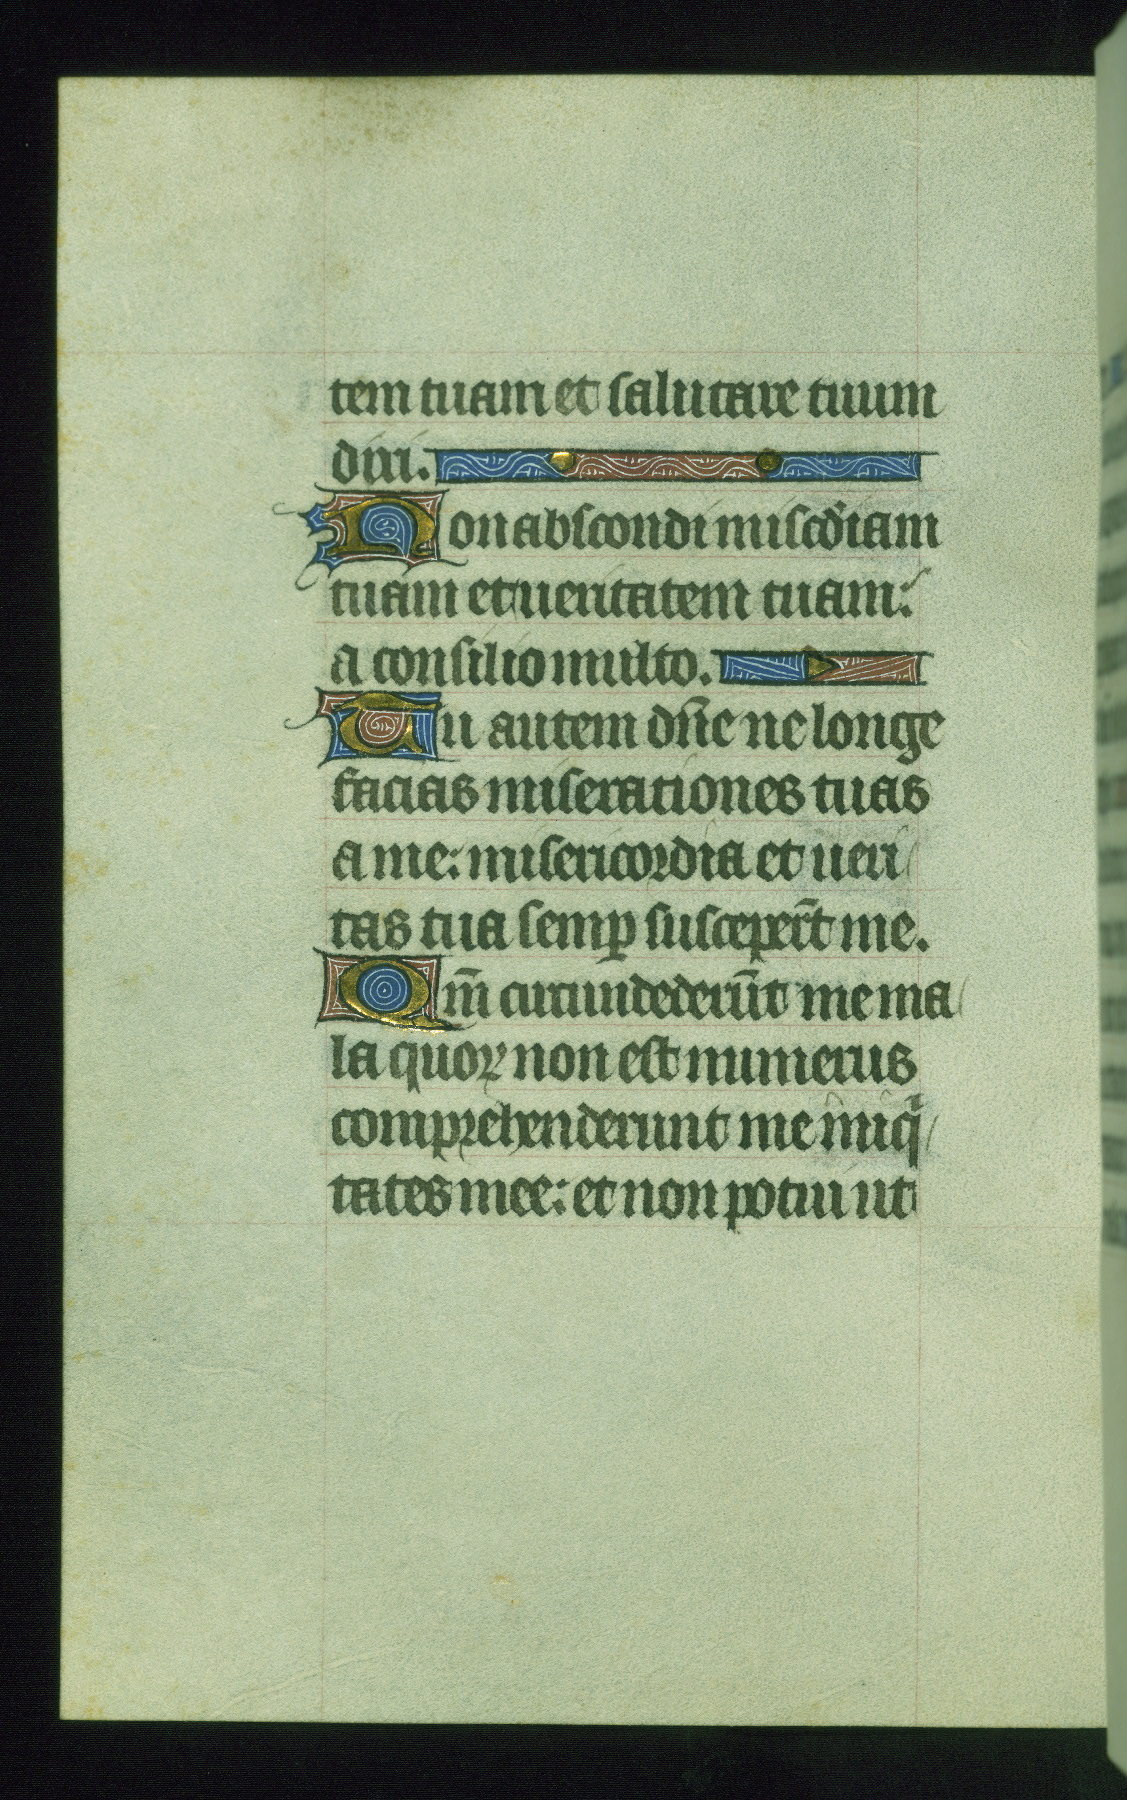 tem tuam et salutare tuum
dixi.
Non abscondi miscd̄iam
tuam et ueritatem tuam:
a consilio multo.
Tu autem dn̄e ne longe
facias miserationes tuas
a me: misericordia et ueri
tas tua semꝑ suscepert̄ me.
Qm̄ circundederūt me ma
la quoꝝ non est numerus
comprehenderunt me iniqi
tates mee: et non potui ut